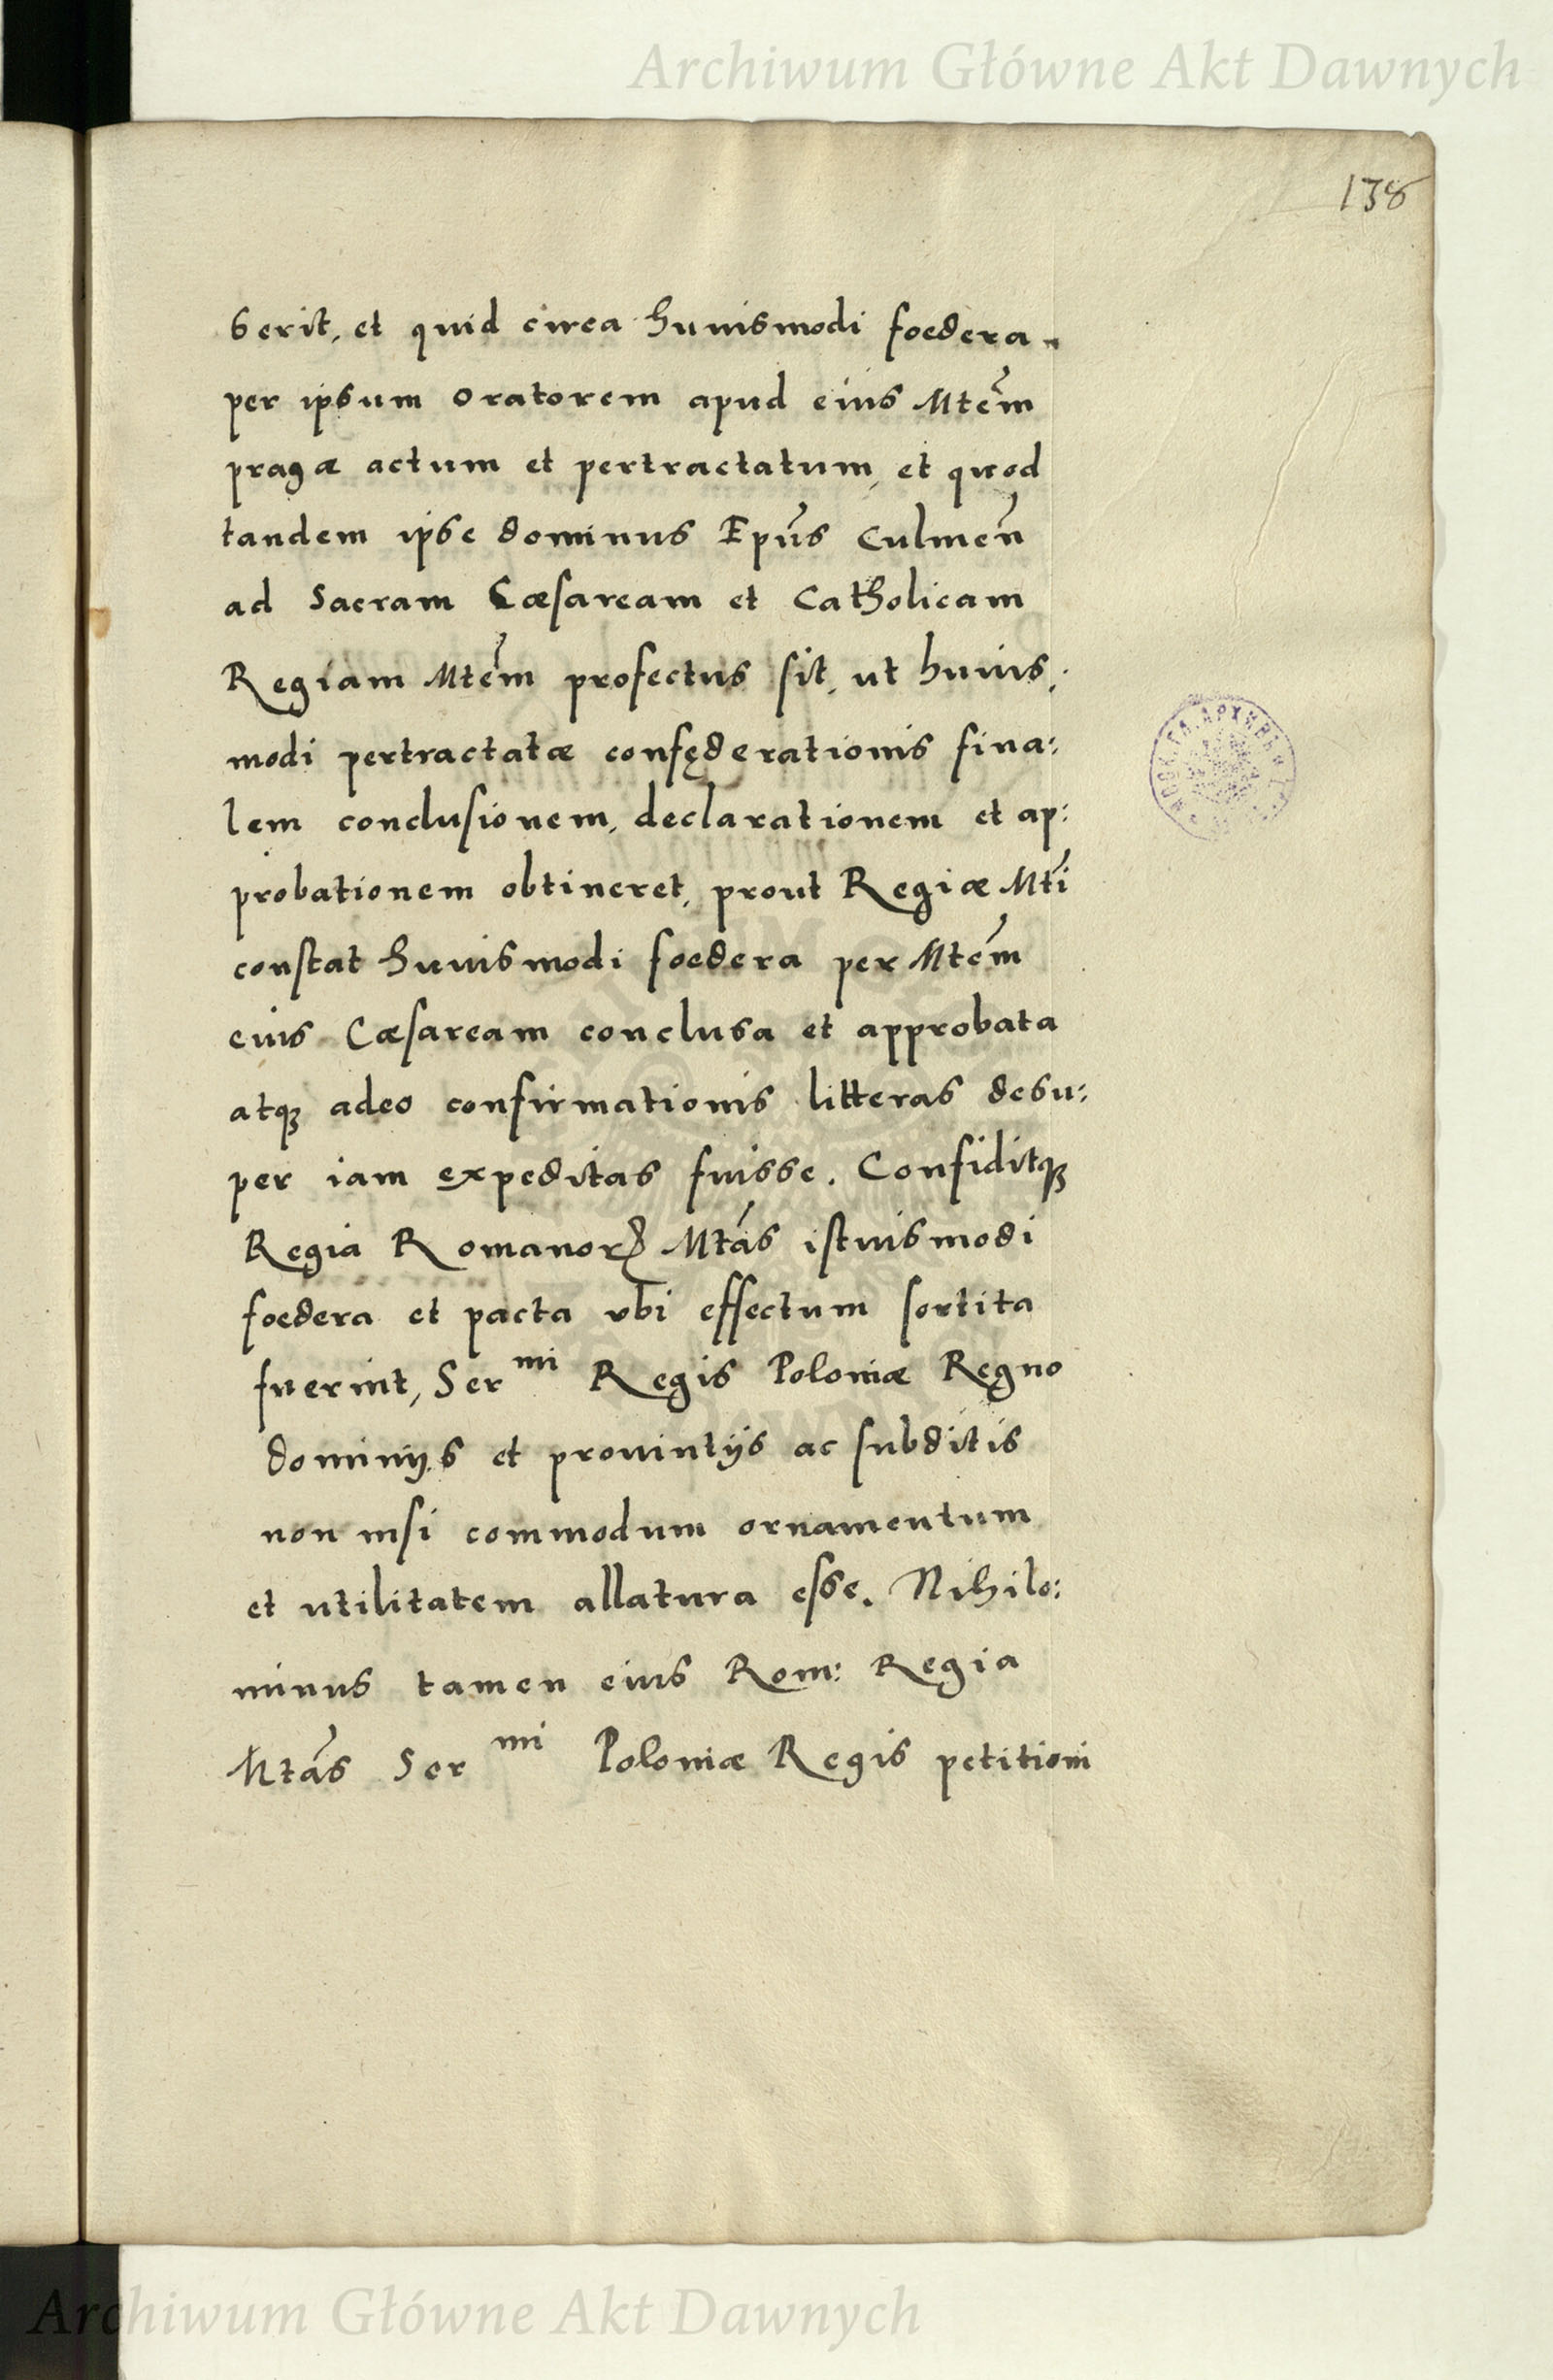 Archiwum Główne Akt Dawnych
138
serit, et quid circa huiusmodi foedera
per ipsum oratorem apud eius Mtem
pragæ actum et pertractatum, et quod
tandem ipse dominus Epus Culmen
ad Sacram Cæsaream et Catholicam
Regiam Mtem profectus sit, ut huius,
modi pertractatæ confęderationis fina:
lem conclusionem, declarationem et ap:
probationem obtineret, prout Regiæ Mti
constat huiusmodi foedera per Mtem
eius Cæsaream conclusa et approbata
atq3 adeo confirmationis litteras desu:
per iam expeditas fuisse. Confiditq3
Regia Romanorꝝ Mtas istiusmodi
foedera et pacta vbi effectum sortita
fuerint, Ser mi Regis Poloniæ Regno
dominijs et prouintijs ac subditis
non nisi commodum ornamentum
et utilitatem allatura esse. Nihilo:
minus tamen eius Rom: Regia
Mtas Ser mi Poloniæ Regis petitioni
Archiwum Główne Akt Dawnych